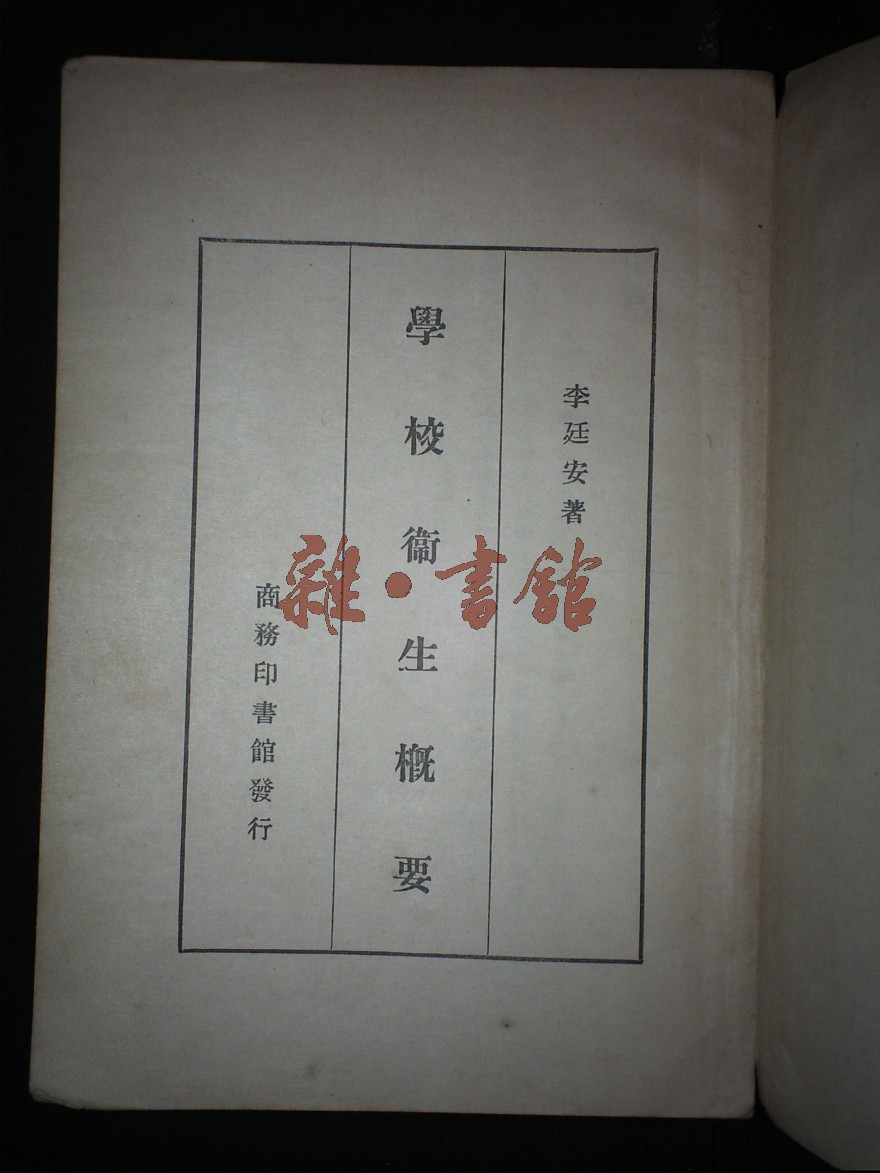 李廷安著
學校衞生概要
商務印書館發行
雜·書館